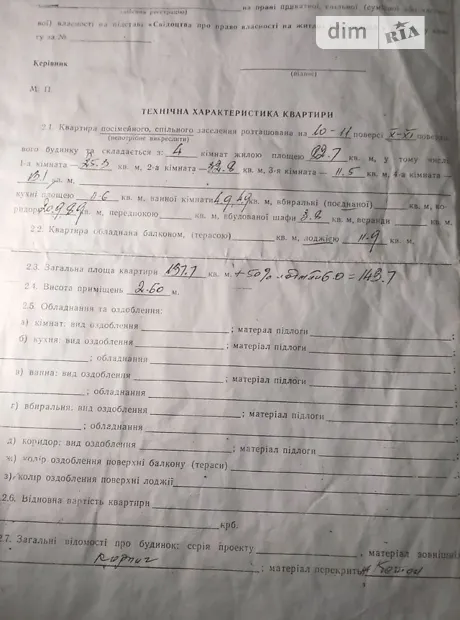 на праві приватної, спільної
вої) власності на підставі «Свідоцтва про право власності на
ту за №
dim RIA
Керівник
(підпис)
М. П.
ТЕХНІЧНА ХАРАКТЕРИСТИКА КВАРТИРИ
2.1. Квартира посімейного, спільного заселення розташована на 10-11 поверсі X-XI
(непотрібне викреслити)
вого будинку та складається з: 4 кімнат жилою площею 92.7 кв. м, у тому числі
1-а кімната 25.3 кв. м, 2-а кімната 32.8 кв. м, 3-я кімната 11.5 кв. м, 4-а кімната
кв. м,
кухні площею 11.6 кв. м, ванної кімнати кв. м, вбиральні (поєднаної) кв. м, ко-
ридору кв. м, передпокою кв. м, вбудованої шафи 3.8 кв. м, веранди кв. м.
2.2. Квартира обладнана балконом, (терасою) кв. м, лоджією 11.9 кв. м.
2.3. Загальна площа квартири 137.7 кв. м. + 50% 6.0 = 143.7
2.4. Висота приміщень 2.60 м.
2.5. Обладнання та оздоблення:
а) кімнат: вид оздоблення ; матерал підлоги ;
б) кухня: вид оздоблення ; матеріал підлоги
; обладнання ;
в) ванна: вид оздоблення ; матеріал підлоги
; обладнання ;
г) вбиральня: вид оздоблення ; матеріал підлоги
; обладнання ;
д) коридор: вид оздоблення ; матеріал підлоги ;
ж) колір оздоблення поверхні балкону (тераси) ;
з) колір оздоблення поверхні лоджії
2.6. Відновна вартість квартири
крб.
2.7. Загальні відомості про будинок: серія проекту , матеріал зовнішніх
кирпич ; матеріал перекриття